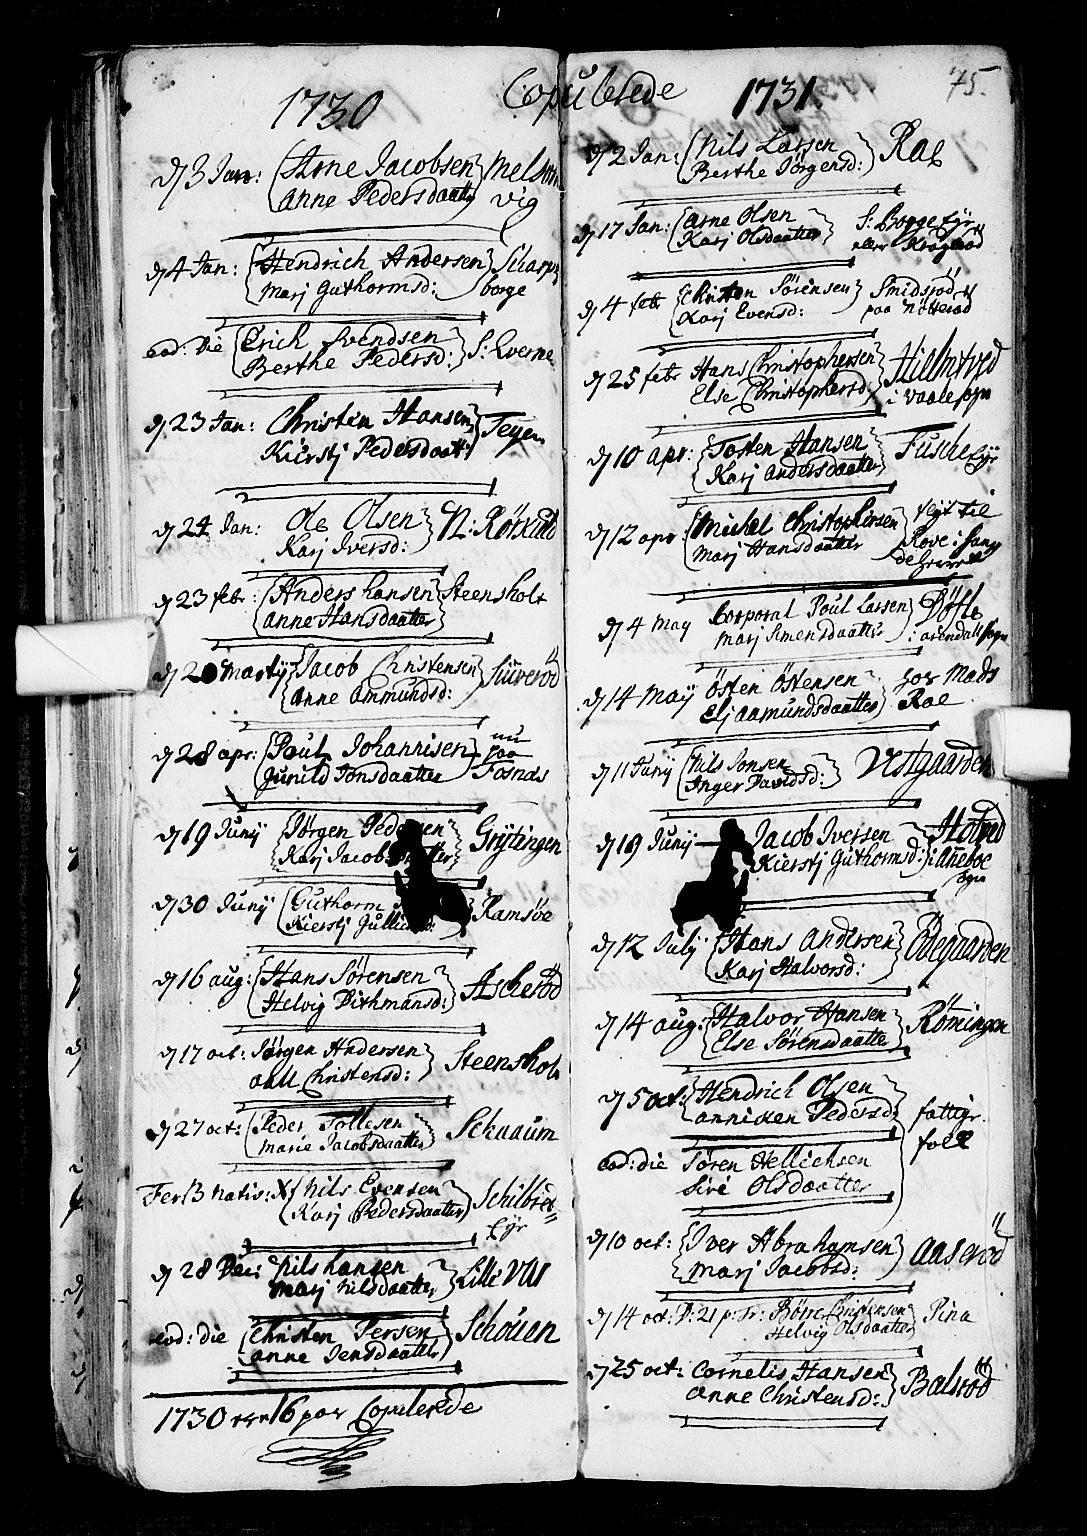 Copulerede
1730
d 3 Jan: Arne Jacobsen
Anne Pedersdaatter
Melsom
vig
d 4 Jan: Hendrich Andersen
Marj Guthormsd:
Scharps
borge
eod: die Erich Svendsen
Berthe Pedersd:
S: Everne
d 23 Jan: Christen Hansen
Kierstj Pedersdaat:
Tegen
d 24 Jan: Ole Olsen
Karj Iversd:
N: Rörkuld
d 23 febr: Anders Hansen
Anne Hansdaatter
Steensholt
d 20 Martij Jacob Christensen
Anne Ammundsd:
Siuveröd
d 28 apr: Poul Johannisen
Gunild Jonsdaatter
nu
paa
Fosnæs
d 19 Junij Jörgen Pedersen
Karj Jacobsdaatter
Grÿtingen
d 30 Junij Guthorm
Kierstj
Ramsöe
d 16 aug: Hans Sörensen
Helvig Dithmansd:
Ascheröd
d 17 oct: Jörgen Andersen
Christensd:
Steensholt
d 27 oct: Peder Tollesen
Marie Jacobsdaatter
Schaaum
Fer: 3 nativ: X Nils Evensen
Karj Pedersdaatter
Schilbrei=
Eÿr
d 28 Dec: Nils Hansen
Marj Nilsdaatter
Lille Var
eod: die Christen Persen
Anne Jensdaatter
Schouen
1730 16 par Copulerede
1731
75.
d 2 Jan: Nils Larsen
Berthe Jörgensd:
Rae
d 17 Jan: Arne Olsen
Karj Olsdaatter
S: Bogge Eÿr
eller Krogeröd
d 4 febr Christen Sörensen
Karj Evensd:
Smidsröd
paa Nötteröd
d 25 febr Hans Christophersen
Else Christophersd
Hillmtved
i Vaale sogn
d 10 apr: Tosten Hansen
Karj Andersdaatter
Fuscheeÿr
d 12 apr: Michel Christophersen
Marj Hansdaatter
fÿt til
Rove i Sand
deherret
d 4 May Corporal Poul Larsen
Marj Simensdaatter
Böfle
i arendals sogn
d 14 Maij Östen Östensen
Elj Aamundsdaatter
hos Mads
Rae
d 11 Junij Nils Jonsen
Inger Davidsd:
Vestgaarden
d 19 Junij Jacob Iversen
Kierstj Guthormsd:
Holtved
i Aneboe
sogn
d 12 Julij Hans Andersen
Karj Halvorsd:
Ödegaarden
d 14 aug: Halvor Hansen
Else Sörensdaatter
Römingen
d 5 oct: Hendrich Olsen
Anniken Pedersd
fattige
folk
eod: die Sören Hellichsen
Siri Olsdaatter
d 10 oct: Iver Abrahamsen
Marj Jacobsd:
Aaseröd
d 14 oct: D: 21 p: Tr: Börre Christensen
Helvig Olsdaatter
Pina
d 25 oct: Cornelis Hansen
Anne Christensd:
Balsröd